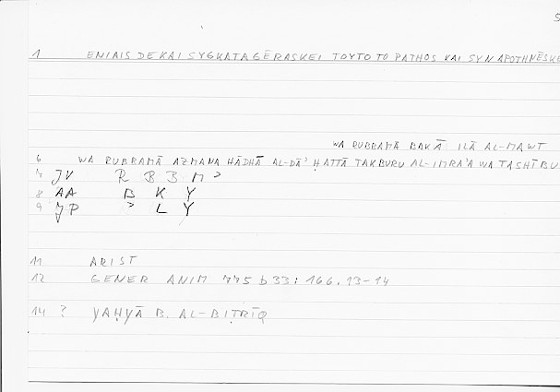 1 ENIAIS DE KAI SYGKATAGĒRASKEI TOYTO TO PATHOS KAI SYNAPOTHNĒSKE
WA RUBBAMĀ BAKĀ ILĀ AL-MAWT
6 WA RUBBAMĀ AZMANA HĀDHĀ AL-DĀʾ ḤATTĀ TAKBURU AL-IMRAʾA WA TASHĪBU
JV R B B M ʾ
8 AA B K Y
9 JP ʾ L Y
11 ARIST
12 GENER ANIM 775 b 33: 166.13-14
14 ? YAḤYĀ B. AL-BIṬRĪQ